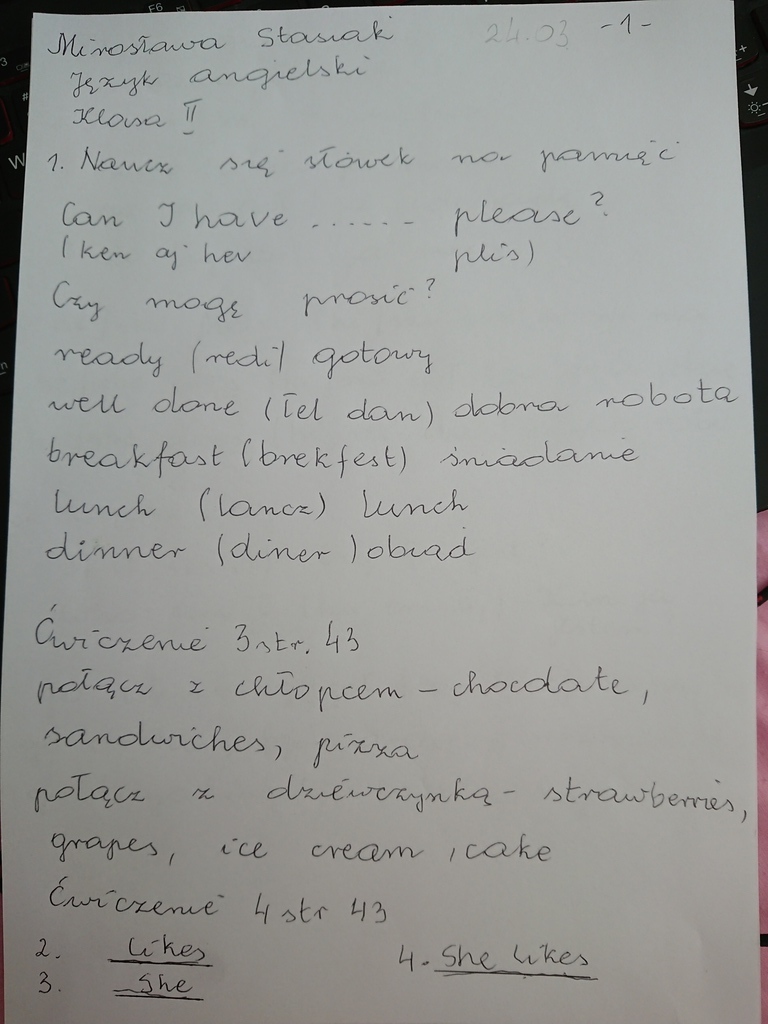 Mirosława Stasiak 24.03 -1-
Język angielski
Klasa II
1. Naucz się słówek na pamięć
Can I have ...... please?
(ken aj hev plis)
Czy mogę prosić?
ready (redi) gotowy
well done (łel dan) dobra robota
breakfast (brekfest) śniadanie
lunch (lancz) lunch
dinner (diner) obiad
Ćwiczenie 3 str. 43
połącz z chłopcem - chocolate,
sandwiches, pizza
połącz z dziewczynką - strawberries,
grapes, ice cream, cake
Ćwiczenie 4 str 43
2. likes 4. She likes
3. She